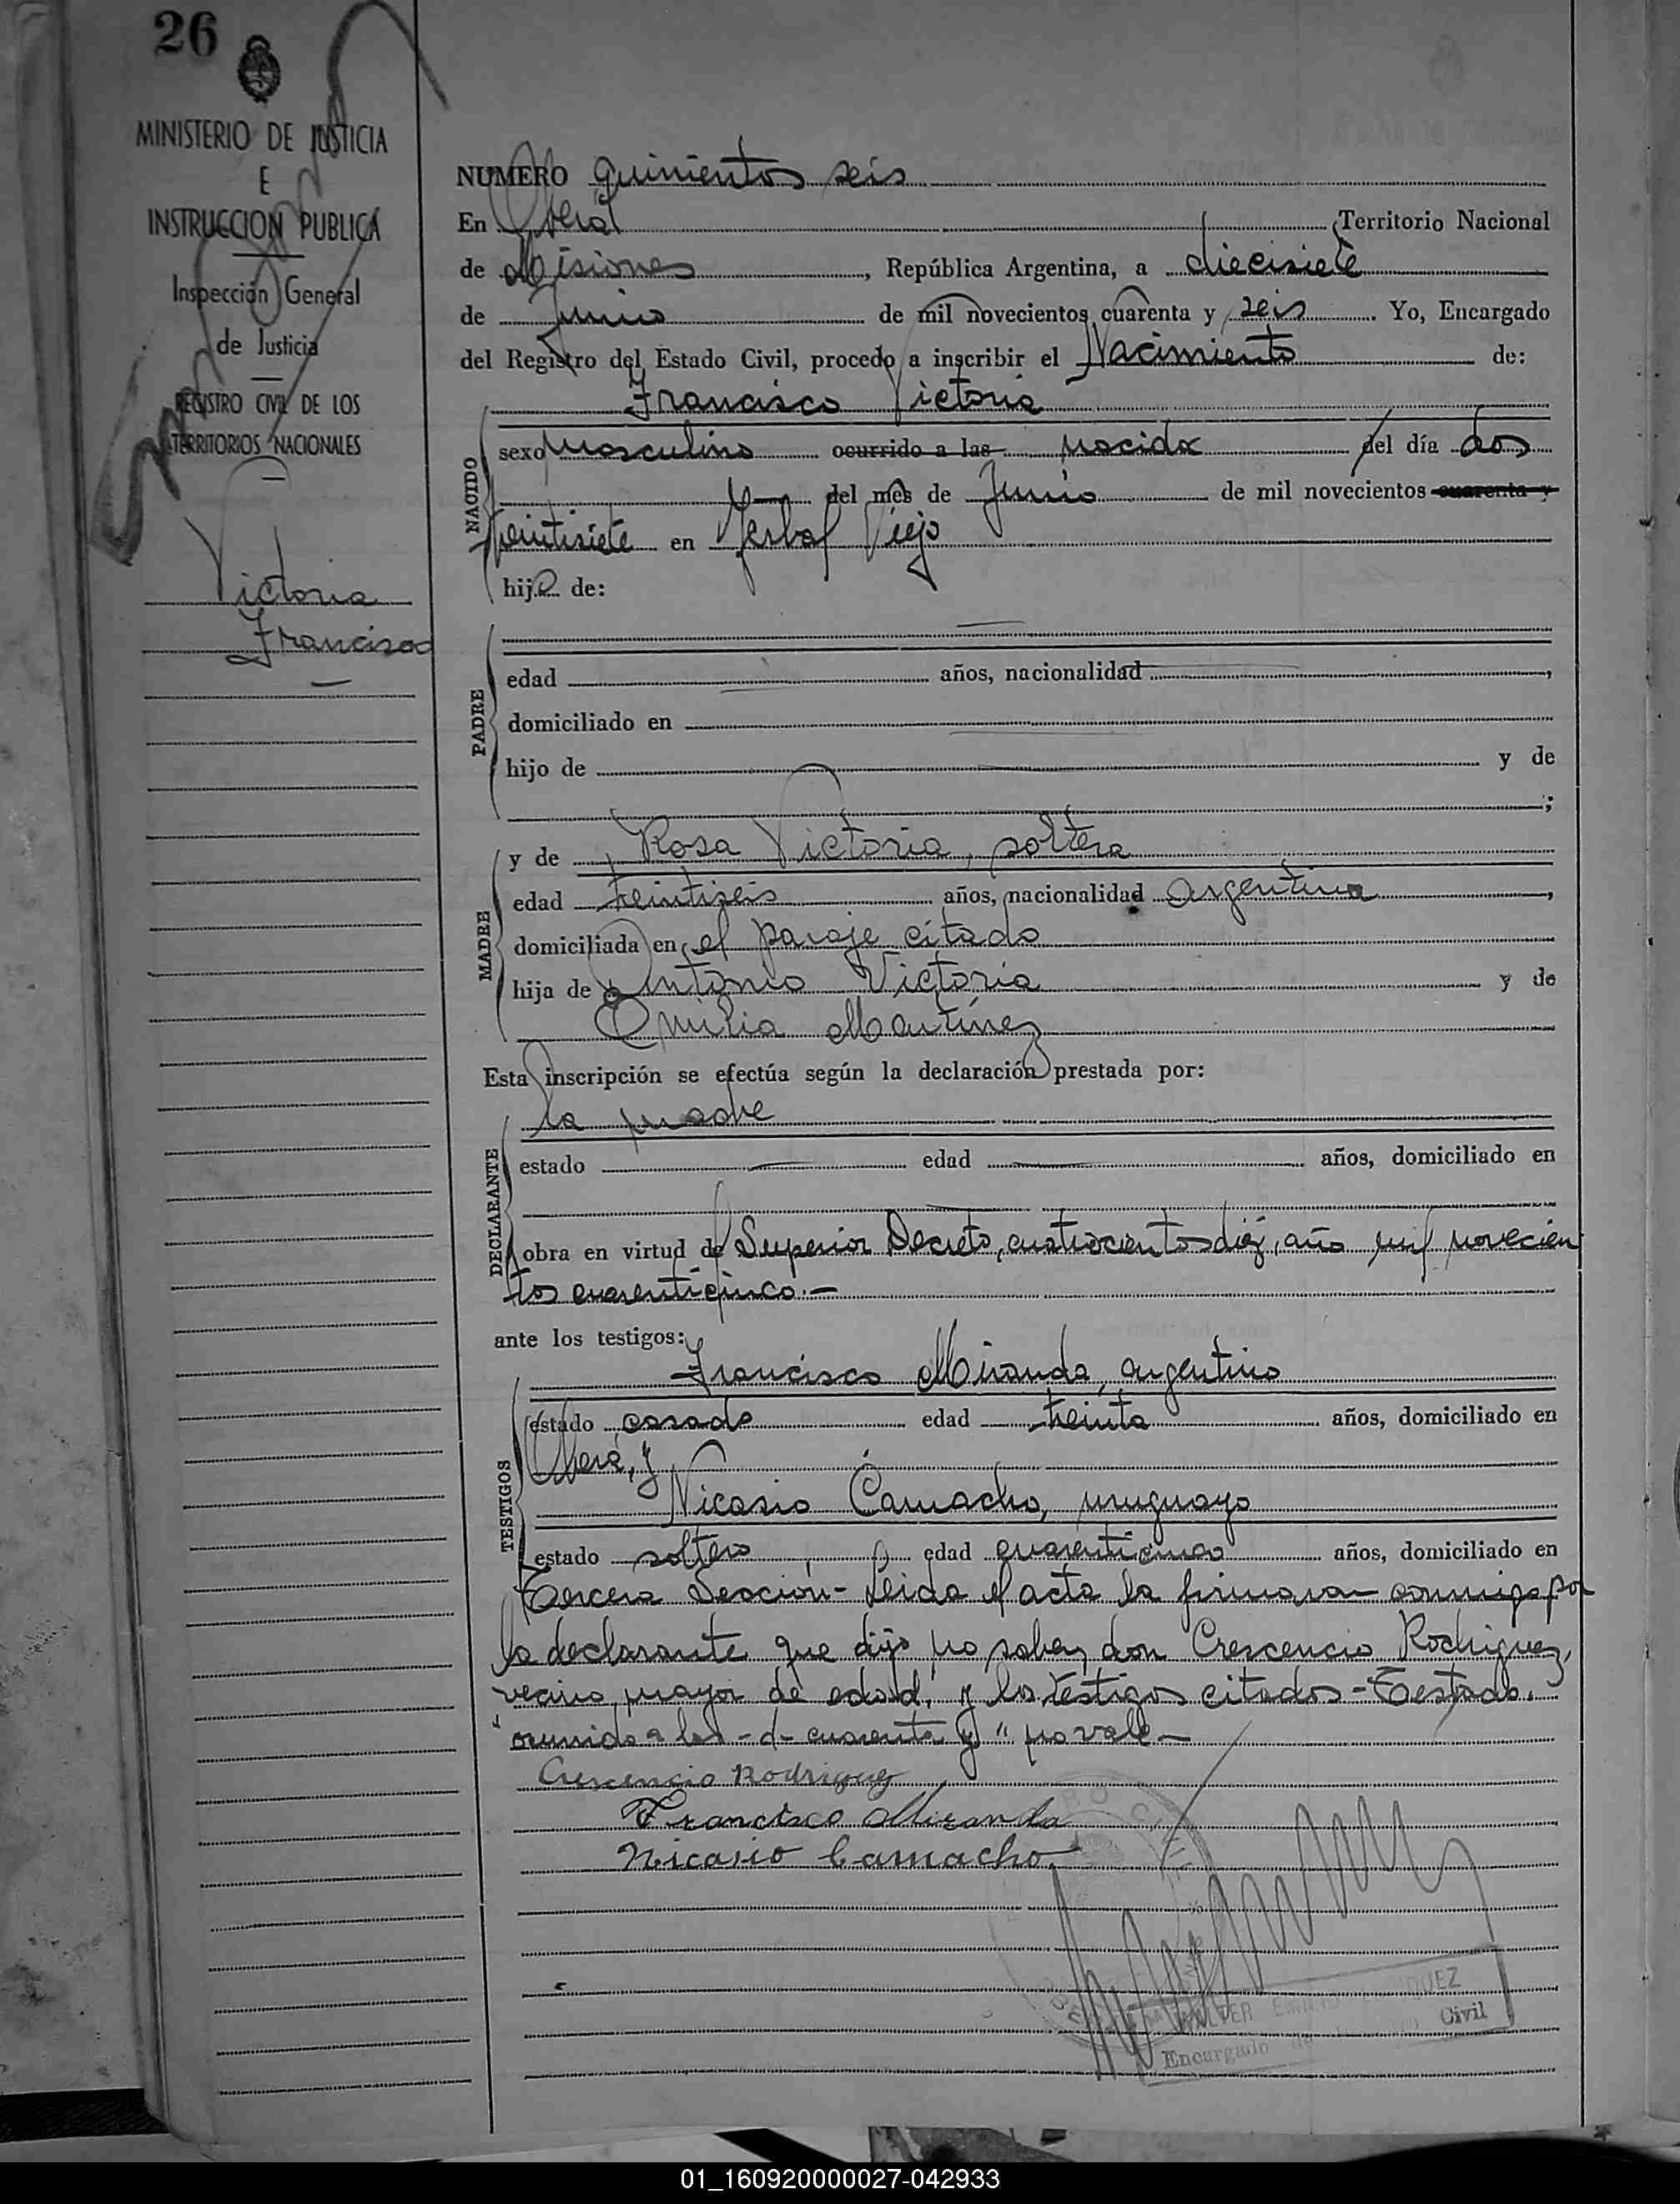 26
MINISTERIO DE JUSTICIA
E
INSTRUCCION PUBLICA
Inspección General
de Justicia
REGISTRO CIVIL DE LOS
TERRITORIOS NACIONALES
Victoria
Francisco
NUMERO quinientos seis
En Oberá Territorio Nacional
de Misiones, República Argentina, a diecisiete
de Junio de mil novecientos cuarenta y seis. Yo, Encargado
del Registro del Estado Civil, procedo a inscribir el Nacimiento de:
Francisco Victoria
NACIDO
sexo masculino ocurrido a las nacido del día dos
del mes de Junio de mil novecientos cuarenta y
treintisiete en Yerbal Viejo
hijo de:
PADRE
edad años, nacionalidad ,
domiciliado en
hijo de y de
;
MADRE
y de Rosa Victoria, soltera
edad treintiseis años, nacionalidad argentina,
domiciliada en el paraje citado
hija de Antonio Victoria y de
Emilia Martinez
Esta inscripción se efectúa según la declaración prestada por:
DECLARANTE
la madre
estado edad años, domiciliado en
obra en virtud del Superior Decreto, cuatrocientos diez, año mil novecien
tos cuarenticinco.-
ante los testigos:
TESTIGOS
Francisco Miranda, argentino
estado casado edad treinta años, domiciliado en
Oberá, y
Nicasio Camacho, uruguayo
estado soltero, edad cuarenticinco años, domiciliado en
Tercera Sección- Leida el acta la firmaron conmigo por
la declarante que dijo no saber, don Crescencio Rodriguez,
vecino, mayor de edad, y los testigos citados- Testado.
"ocurrido a las -d- cuarenta y" no vale-
Crescencio Rodriguez
Francisco Miranda
Nicasio Camacho.
Encargado de Civil
01_160920000027-042933